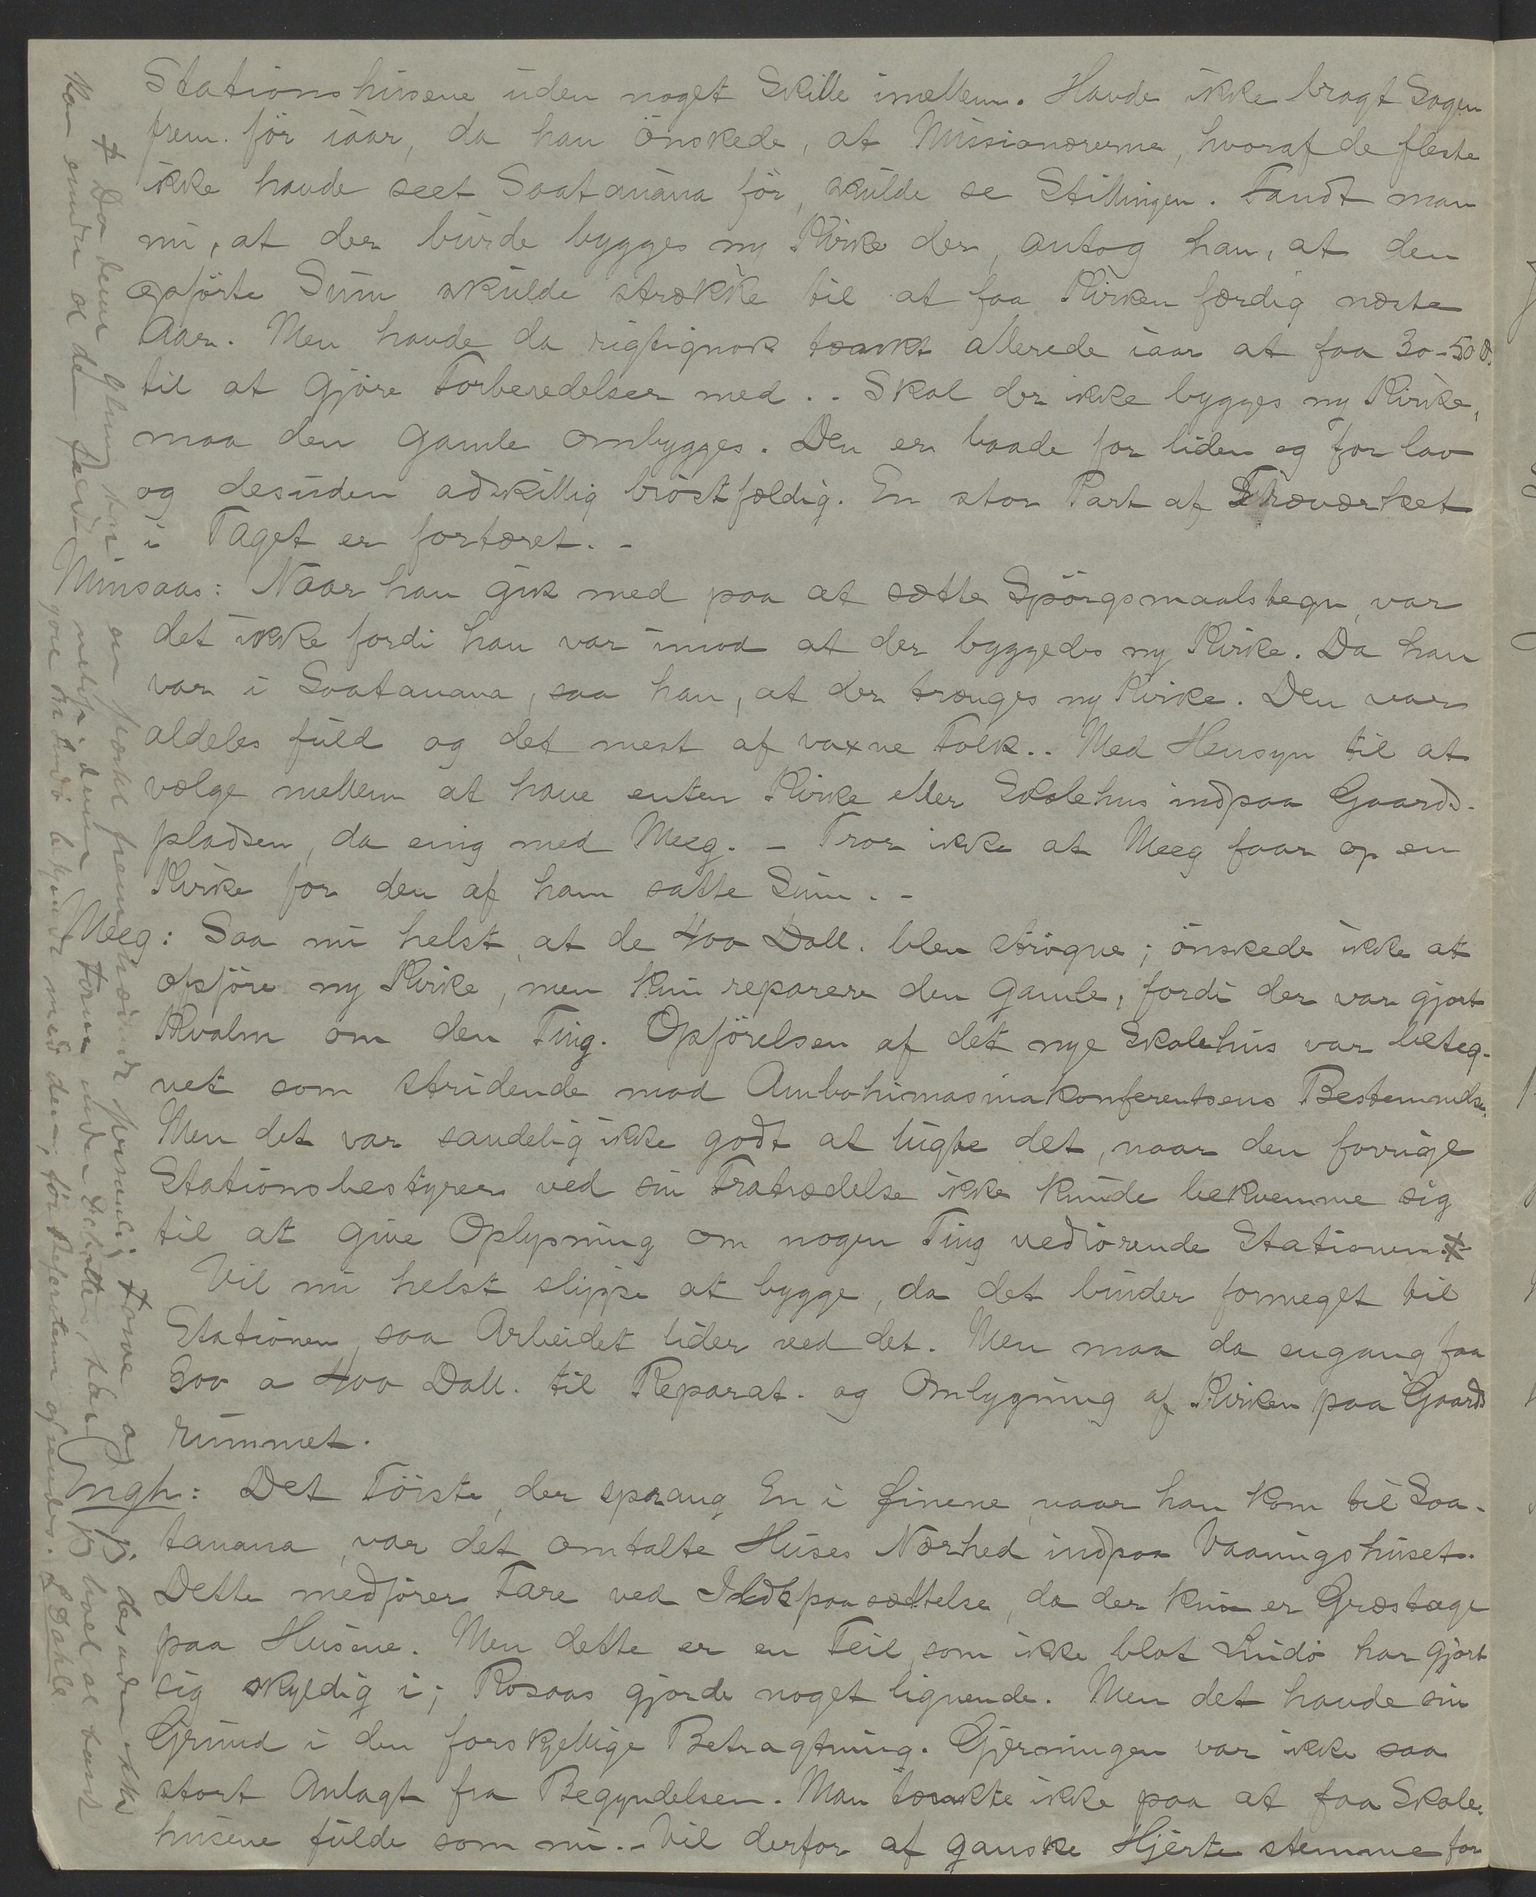 Stationshusene uden noget Skille imellem. Havde ikke bragt Sagen
frem før iaar, da han ønskede, at Missionærerne, hvoraf de fleste
ikke havde seet Soatanana før, skulde se Stillingen. Fandt man
nu, at der burde bygges ny Kirke der, antog han, at den
opførte Sum skulde strække til at faa Kirken færdig næste
Aar. Men havde da rigtignok tænkt allerede iaar at faa 30-50 D.
til at gjøre Forberedelser med. . Skal der ikke bygges ny Kirke,
maa den gamle ombygges. Den er baade for liden og for lav
og desuden adskillig brøstfældig. En stor Part af Træværket
i Taget er fortæret. -
Minsaas: Naar han gik med paa at sætte Spørgsmaalstegn, var
det ikke fordi han var imod at der byggedes ny Kirke. Da han
var i Soatanana, saa han, at der trænges ny Kirke. Den var
aldeles fuld og det mest af voxne Folk. . Med Hensyn til at
vælge mellem at have enten Kirke eller Skolehus indpaa Gaards-
pladsen, da enig med Meeg. - Tror ikke at Meeg faar op en
Kirke for den af ham satte Sum. -
Meeg: Saa nu helst, at de 400 Doll. blev strøgne; ønskede ikke at
opføre ny Kirke, men kun reparere den gamle, fordi der var gjort
Kvalm om den Ting. Opførelsen af det nye Skolehus var beteg-
net som stridende mod Ambohimasinakonferentsens Bestemmelse.
Men det var sandelig ikke godt at lugte det, naar den forrige
Stationsbestyrer ved sin Fratrædelse ikke kunde bekvemme sig
til at give Oplysning om nogen Ting vedrørende Stationen ‡
Vil nu helst slippe at bygge, da det binder formeget til
Stationen, saa Arbeidet lider ved det. Men maa da engang faa
300 a 400 Doll. til Reparat. og Ombygning af Kirken paa Gaards
rummet.
Engh: Det Første, der sprang En i Øinene, naar han kom til Soa-
tanana, var det omtalte Huses Nærhed indpaa Vaaningshuset.
Dette medfører Fare ved Ildspaasættelse, da der kun er Græstage
paa Husene. Men dette er en Feil, som ikke blot Lindø har gjort
sig skyldig i; Rosaas gjorde noget lignende. Men det havde sin
Grund i den forskjellige Betragtning. Gjerningen var ikke saa
stort Anlagt fra Begyndelsen. Man tænkte ikke paa at faa Skole-
husene fulde som nu. - Vil derfor af ganske Hjerte stemme for
‡ Da denne Ytring har en personlig Form og desuden ikke
L Dahle